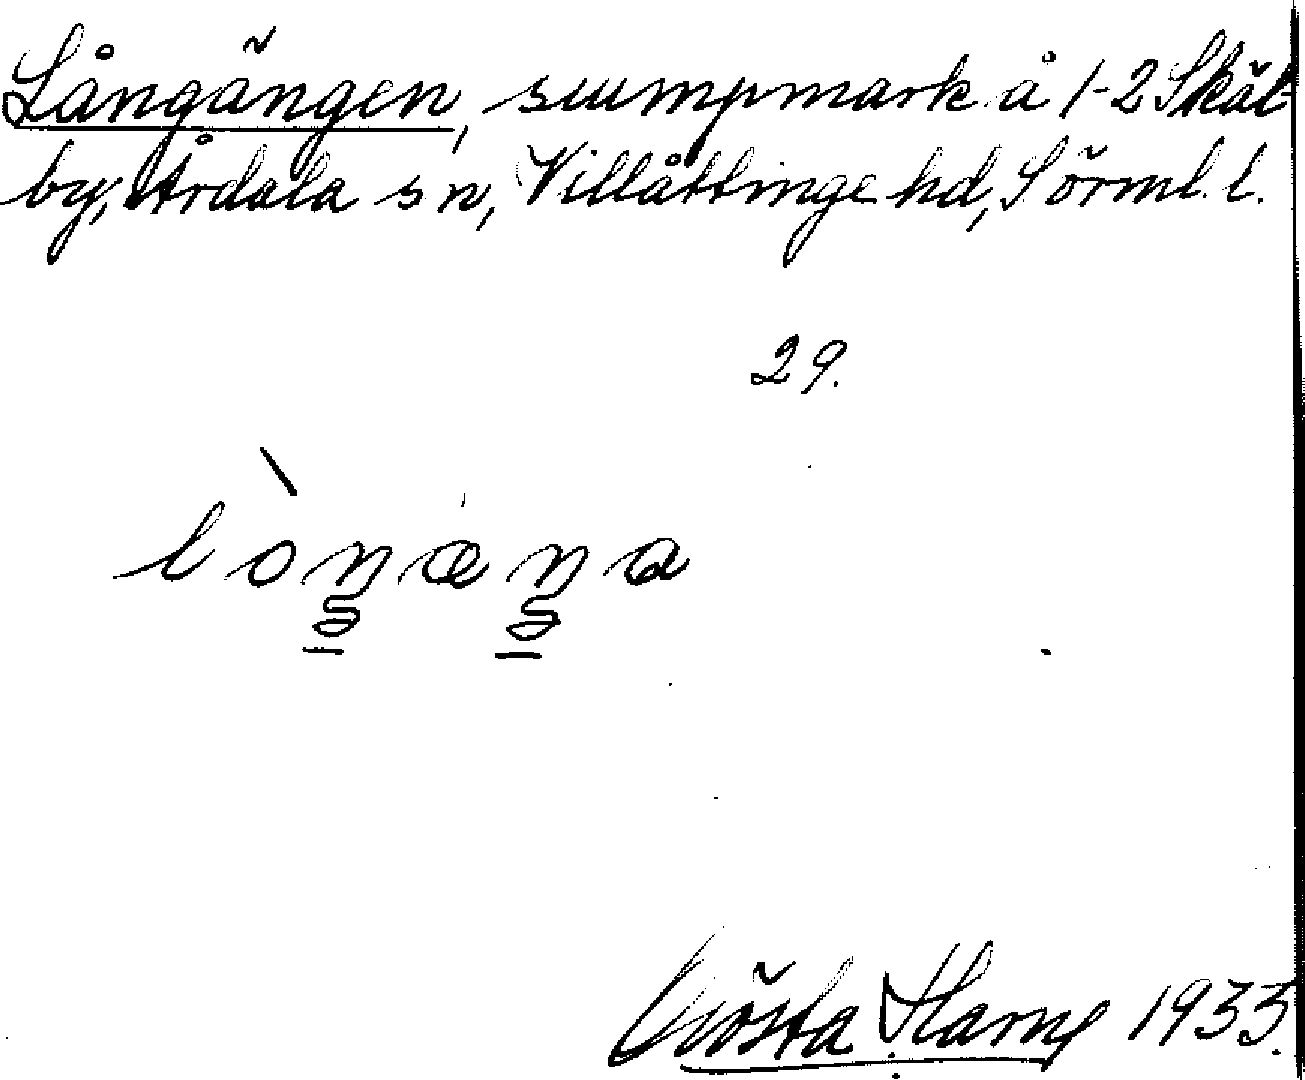 Långängen, sumpmark å 1-2 Skäl-
by, Årdala sn, Villåttinge hd, Sörml. l.
29.
Gösta 1933.